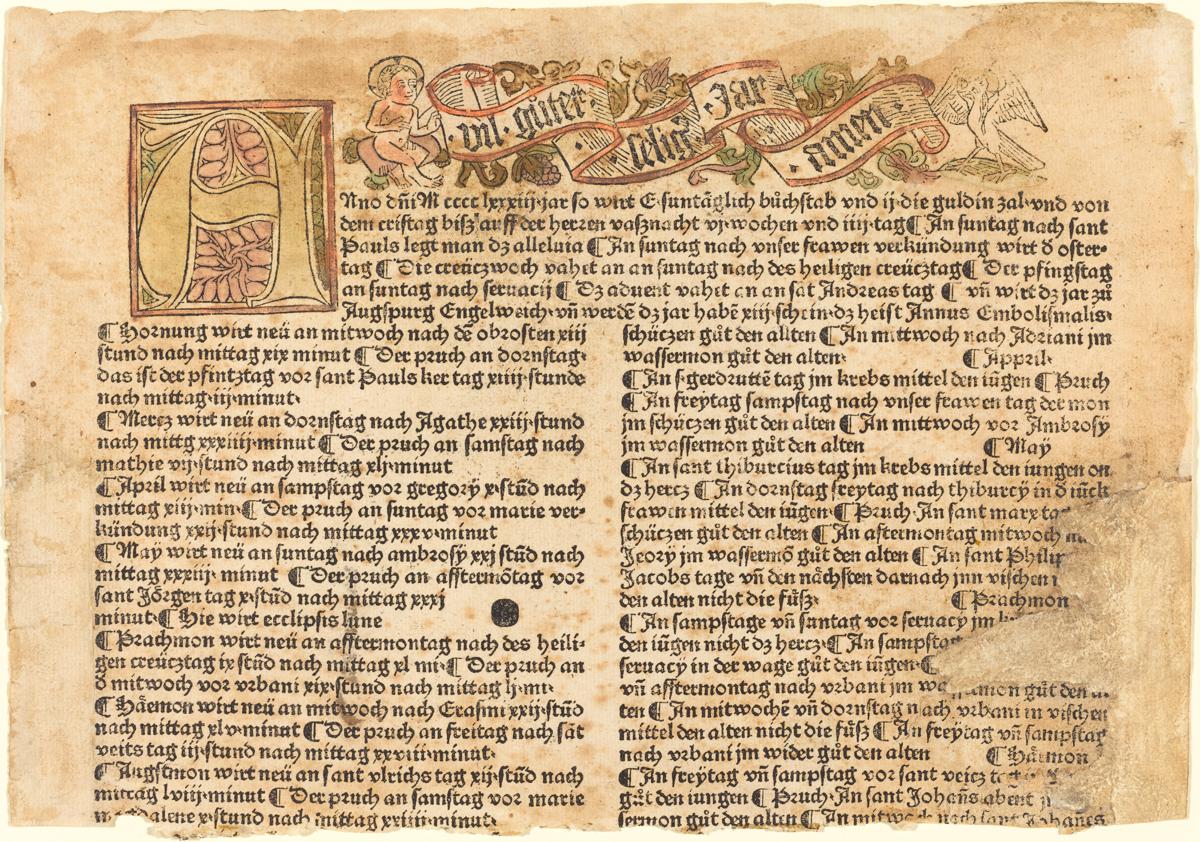 ·vil·guter·
·selige·
·Jar·
·amen·
ANno dñi M cccc lxxxiij·jar so wirt E·suntäglich bůchstab vnd ij·die guldin zal·vnd von
dem cristag bisz auff der herren vasznacht vj·wochen vnd iiij·tag ¶ An suntag nach sant
Pauls legt man dz alleluia ¶ An suntag nach vnser frawen verkündung wirt ð oster-
tag ¶ Die creüczwoch vahet an an suntag nach des heiligen creücztag ¶ Der pfingstag
an suntag nach seruacij ¶ Dz aduent vahet an an sāt Andreas tag ¶ vñ wirt dz jar zů
Augspurg Engelweich·vñ werdē dz jar habē xiij·schein·dz heist Annus Embolismalis·
¶ Hornung wirt neü an mitwoch nach dē obrosten xiij
stund nach mittag xix minut ¶ Der pruch an dornstag·
das ist der pfintztag vor sant Pauls ker tag xiiij·stunde
nach mittag·iij·minut·
¶ Mercz wirt neü an dornstag nach Agathe xxiij·stund
nach mittg xxxiiij·minut ¶ Der pruch an samstag nach
mathie vij·stund nach mittag xlj·minut
¶ April wirt neü an sampstag vor gregorÿ x·stūd nach
mittag xiij·min·¶ Der pruch an suntag vor marie ver-
kündung xxij·stund nach mittag xxxv·minut
¶ Maÿ wirt neü an suntag nach ambrosÿ xxj stūd nach
mittag xxxiij·minut ¶ Der pruch an afftermōtag vor
sant Jörgen tag x·stūd nach mittag xxxj
minut·¶ Hie wirt ecclipsis lune
¶ Prachmon wirt neü an afftermontag nach des heili-
gen creücztag ix stūd nach mittag xl mi·¶ Der pruch an
ð mitwoch vor vrbani xix·stund nach mittag lj·mi·
¶ Häemon wirt neü an mitwoch nach Erasmi xxij·stūd
nach mittag xl v·minut ¶ Der pruch an freitag nach sāt
veits tag iij·stund nach mittag xxviii·minut·
¶ Augstmon wirt neü an sant vlrichs tag xij·stūd nach
mittag lviij·minut ¶ Der pruch an samstag vor marie
x·stund nach mittag xxiiij·minut·
schüczen gůt den allten ¶ An mittwoch nach Adriani jm
wassermon gůt den alten· ¶ Appril·
¶ An s·gerdruttē tag jm krebs mittel den iügen ¶ Pruch
¶ An freytag sampstag nach vnser frawen tag der mon
jm schüczen gůt den alten ¶ An mittwoch vor Ambrosÿ
jm wassermon gůt den alten ¶ Maÿ
¶ An sant thiburcius tag jm krebs mittel den iungen on
dz hercz ¶ An dornstag freytag nach thiburcÿ in ð iūck
frawen mittel den iügen·¶ Pruch·An sant marx tag
schüczen gůt den alten ¶ An aftermontag mitwoch
Jeorÿ jm wassermō gůt den alten ¶ An sant Philip
Jacobs tage vñ den nächsten darnach jnn vischen
den alten nicht die füsz· ¶ Prachmon
¶ An sampstage vñ suntag vor seruacÿ jm
den iügen nicht dz hercz·¶ An sampstag
seruacÿ in der wage gůt den iügen·¶
vñ afftermontag nach vrbani jm wassermon gůt den
ten ¶ An mitwochē vñ dornstag nach vrbani in vischen
mittel den alten nicht die füsz ¶ An freytag vñ sampstag
nach vrbani jm wider gůt den alten ¶ Häemon
¶ An freÿtag vñ sampstag vor sant veicz
gůt den iungen ¶ Pruch·An sant Johañs abent
sermon gůt den alten ¶ An mitwoch nach sant Johañes